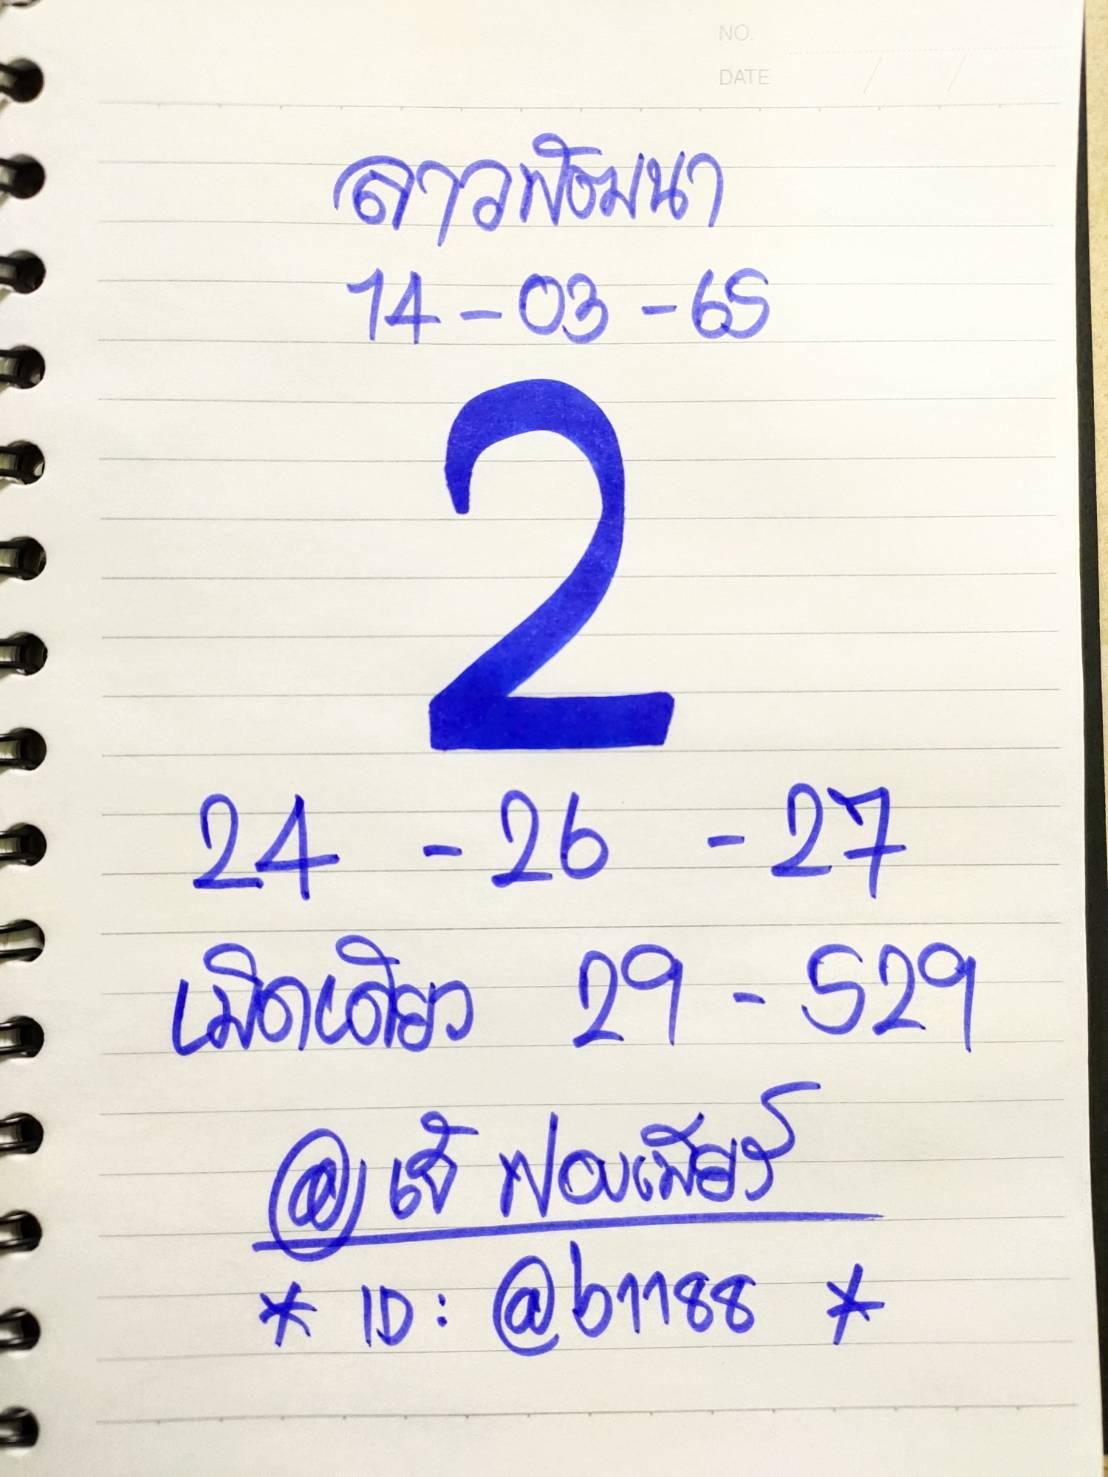 NO.
DATE / /
ลาวพัฒนา
14 - 03 - 65
2
24 - 26 - 27
เม็ดเดียว 29 - 529
@เจ๊ ฟองเบียร์
* ID: @b1188 *